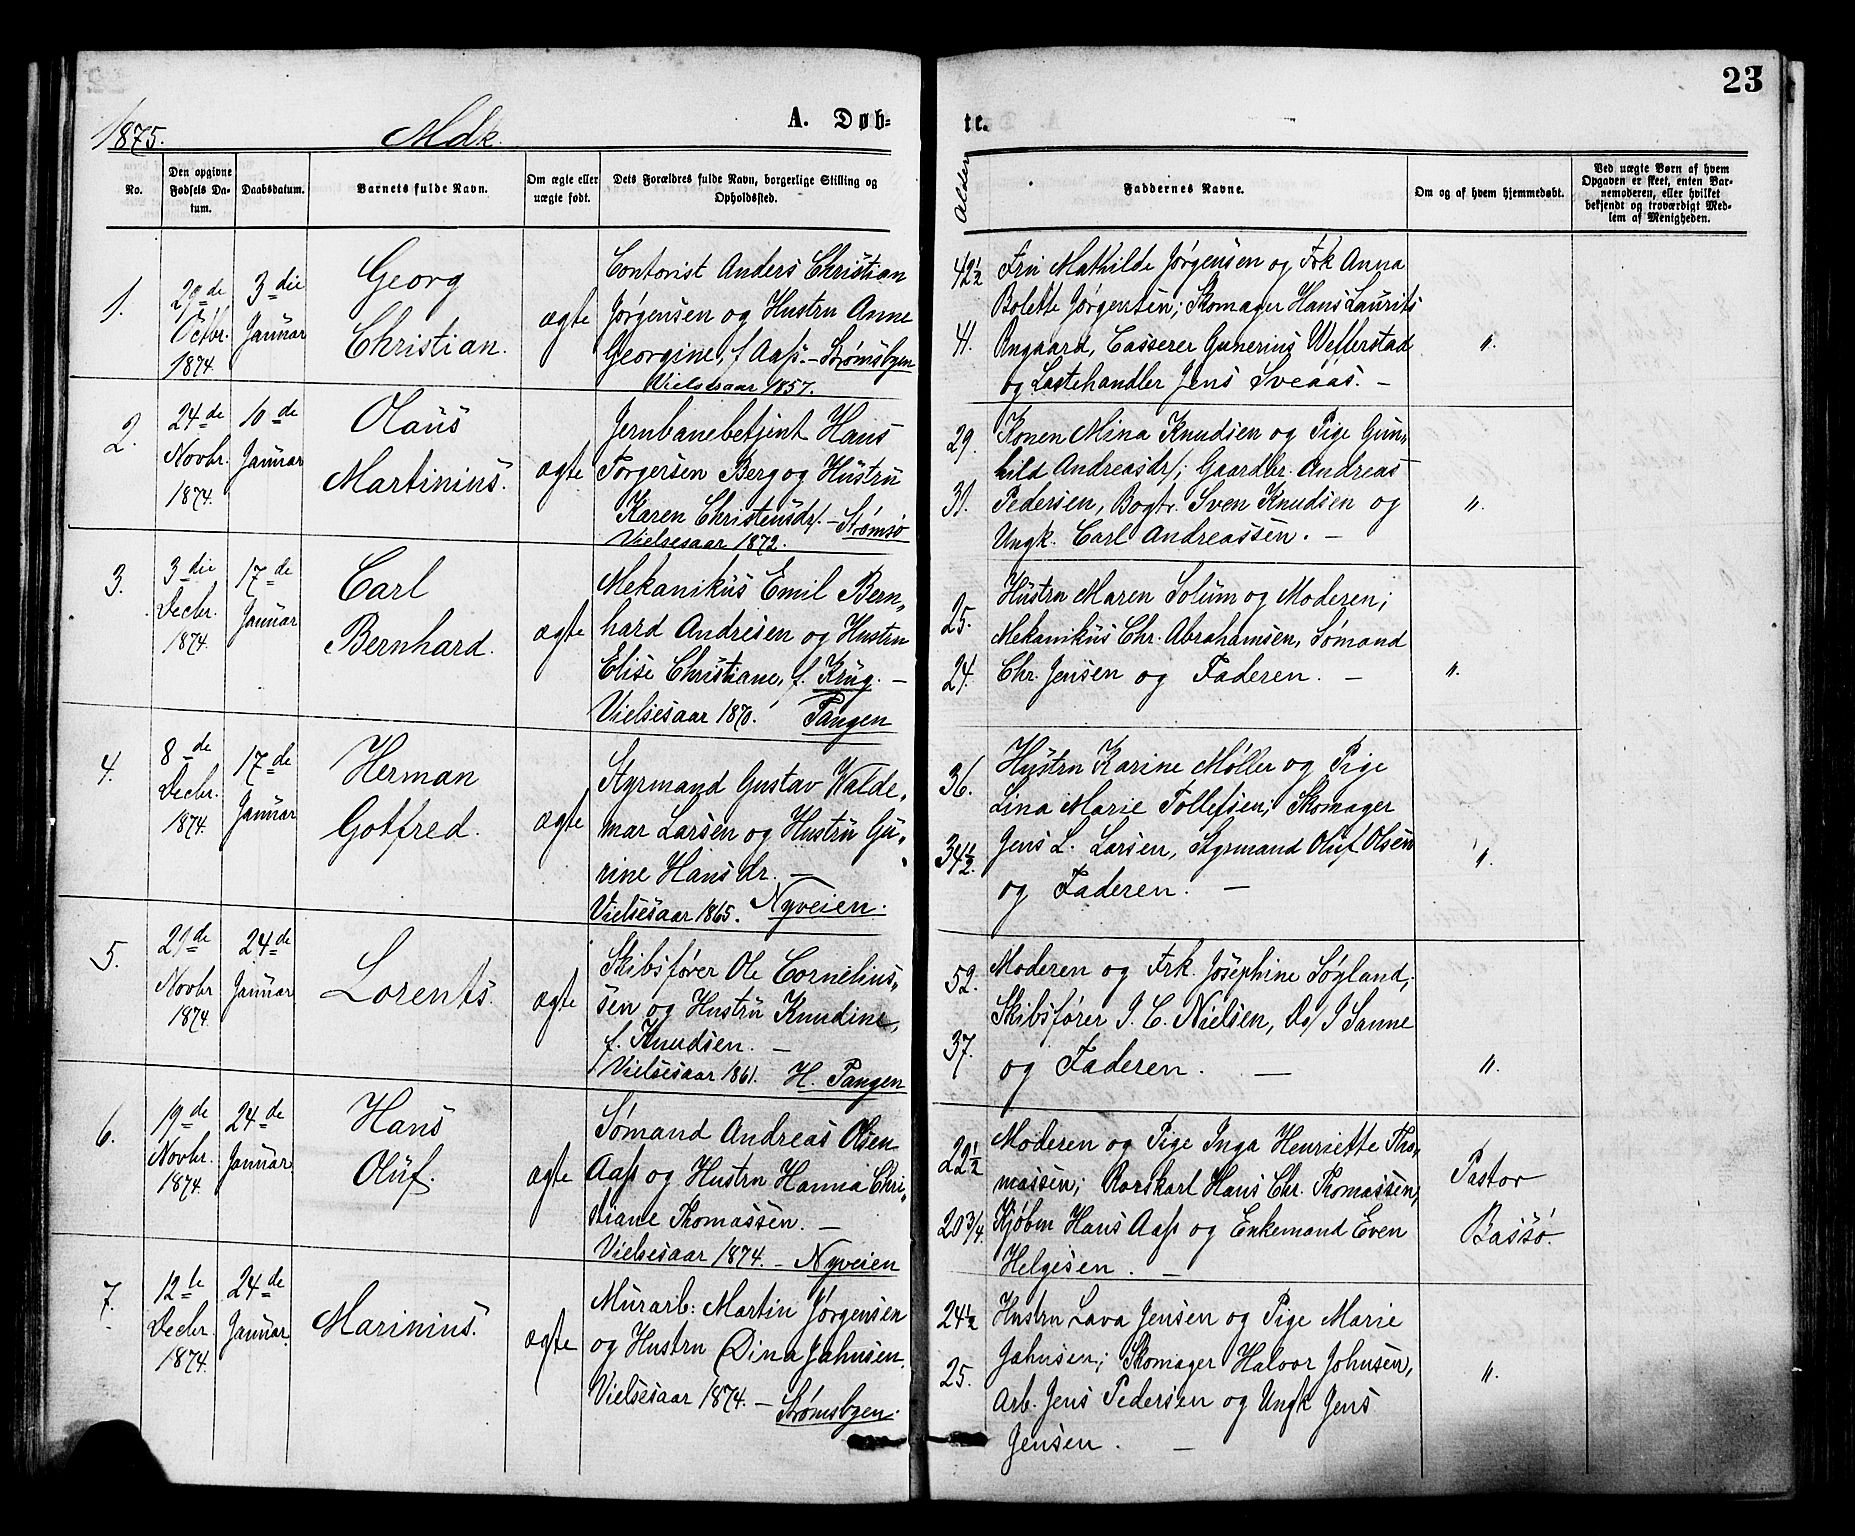 23
1875. Mdk. A. Døb- te.
No.
Den opgivne Fødsels Da-tum.
Daabsdatum.
Barnets fulde Navn.
Om ægte eller uægte født.
Dets Forældres fulde Navn, borgerlige Stilling og Opholdssted.
Alderen
Faddernes Navne.
Om og af hvem hjemmedøbt.
Ved uægte Børn af hvem Opgaven er skeet, enten Bar-nemoderen, eller hvilket bekjendt og troværdigt Med-lem af Menigheden.
1.
29de
Octbr.
1874.
3die
Januar
Georg
Christian.
ægte
Contorist Anders Christian
Jørgensen og Hustru Anne
Georgine, f. Aass. – Strømsbyen
Vielsesaar 1857.
42½
41.
Fru Mathilde Jørgensen og Frk Anna
Bolette Jørgensen; Skomager Hans Laurits
Ungaard, Casserer Gunerius Wefferstad
og Lastehandler Jens Sveaas. –
"
2.
24de
Novbr.
1874.
10de
Januar
Olaus
Martinius.
ægte
Jernbanebetjent Hans
Torgersen Berg og Hustru
Karen Christensdr. – Strømsø
Vielsesaar 1872.
29.
31.
Konen Mina Knudsen og Pige Gun-
hild Andreasdr.; Gaardbr. Andreas
Pedersen, Bogtr. Sven Knudsen og
Ungk. Carl Andreassen. –
"
3.
3die
Decbr.
1874.
17de
Januar
Carl
Bernhard.
ægte
Mekanikus Emil Bern-
hard Andresen og Hustru
Elise Christiane, f. Krug. –
Vielsesaar 1870. Tangen
25.
24.
Hustru Maren Solum og Moderen;
Mekanikus Chr. Abrahamsen, Sømand
Chr. Jensen og Faderen. –
"
4.
8de
Decbr.
1874.
17de
Januar
Herman
Gotfred.
ægte
Styrmand Gustav Walde-
mar Larsen og Hustru Gu-
rine Hansdr. –
Vielsesaar 1865. Nyveien.
36.
34½.
Hustru Karine Møller og Pige
Lina Marie Tollefsen; Skomager
Jens L. Larsen, Styrmand Oluf Olsen
og Faderen. –
"
5.
21de
Novbr
1874.
24de
Januar
Lorents.
ægte
Skibsfører Ole Cornelius-
sen og Hustru Knudine,
f. Knudsen. –
Vielsesaar 1861. H. Tangen
52.
37.
Moderen og Frk. Josephine Søyland;
Skibsfører I. C. Nielsen, Do/ I Sanne
og Faderen. –
"
6.
19de
Novbr.
1874.
24de
Januar.
Hans
Oluf.
ægte
Sømand Andreas Olsen
Aass og Hustru Hanna Chri-
stiane Thomassen. –
Vielsesaar 1874. – Nyveien
22½
20 3/4.
Moderen og Pige Inga Henriette Tho-
massen; Rorskarl Hans Chr. Thomassen,
Kjøbm Hans Aass og Enkemand Even
Helgesen. –
Pastor
Bassø.
7.
12te
Decbr.
1874.
24de
Januar.
Marinius.
ægte
Murarb: Martin Jørgensen
og Hustru Dina Jahnsen.
Vielsesaar 1874. –
Strømsbyen.
24½
25.
Hustru Lava Jensen og Pige Marie
Jahnsen; Skomager Halvor Johnsen,
Arb. Jens Pedersen og Ungk Jens
Jensen. –
"